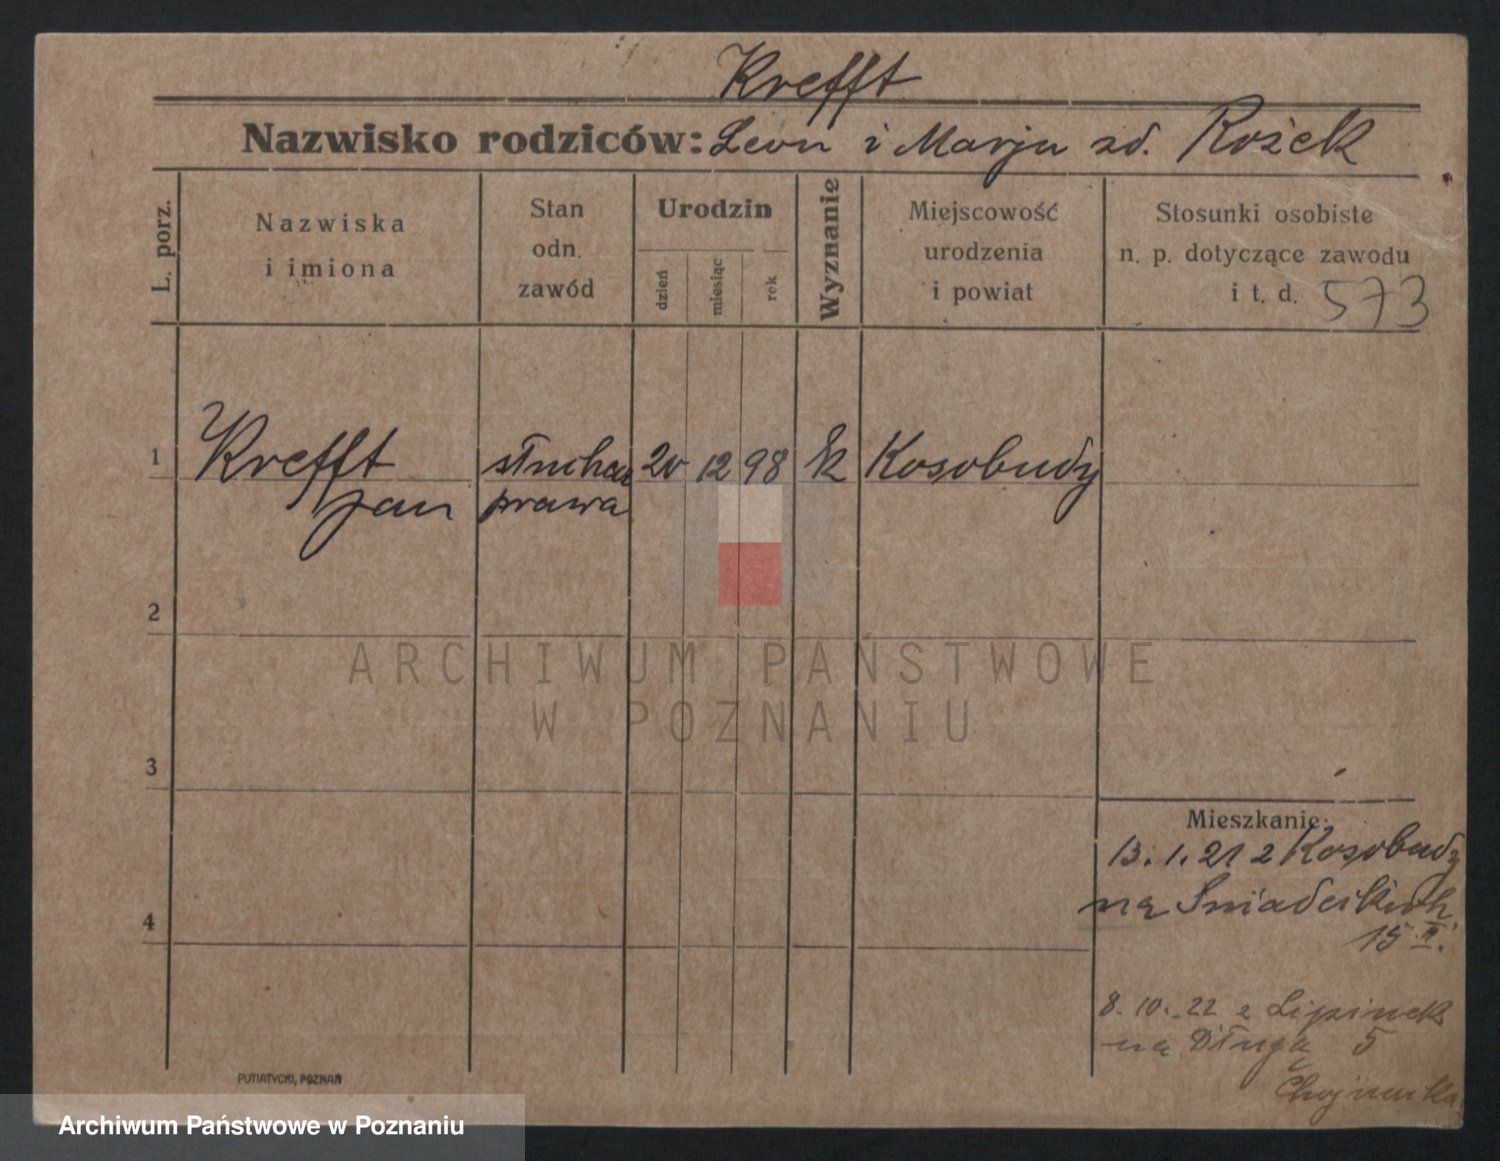 Krefft
Nazwisko rodziców: Leon i Marja zd. Rożek
L. porz.
Nazwiska
i imiona
Stan
odn.
zawód
Urodzin
dzień
miesiąc
rok
Wyznanie
Miejscowość
urodzenia
i powiat
Stosunki osobiste
n. p. dotyczące zawodu
i t. d. 573
1 Krefft słuchacz 20 12 98 k Kosobudy
Jan prawa
2
ARCHIWUM PAŃSTWOWE
W POZNANIU
3
Mieszkanie:
13.1.21 z Kosobudy
na Śniadeckich
4
15 II.
8.10.22 z Lipinek
na Długą 5
PUTIATYCKI, POZNAŃ
Archiwum Państwowe w Poznaniu